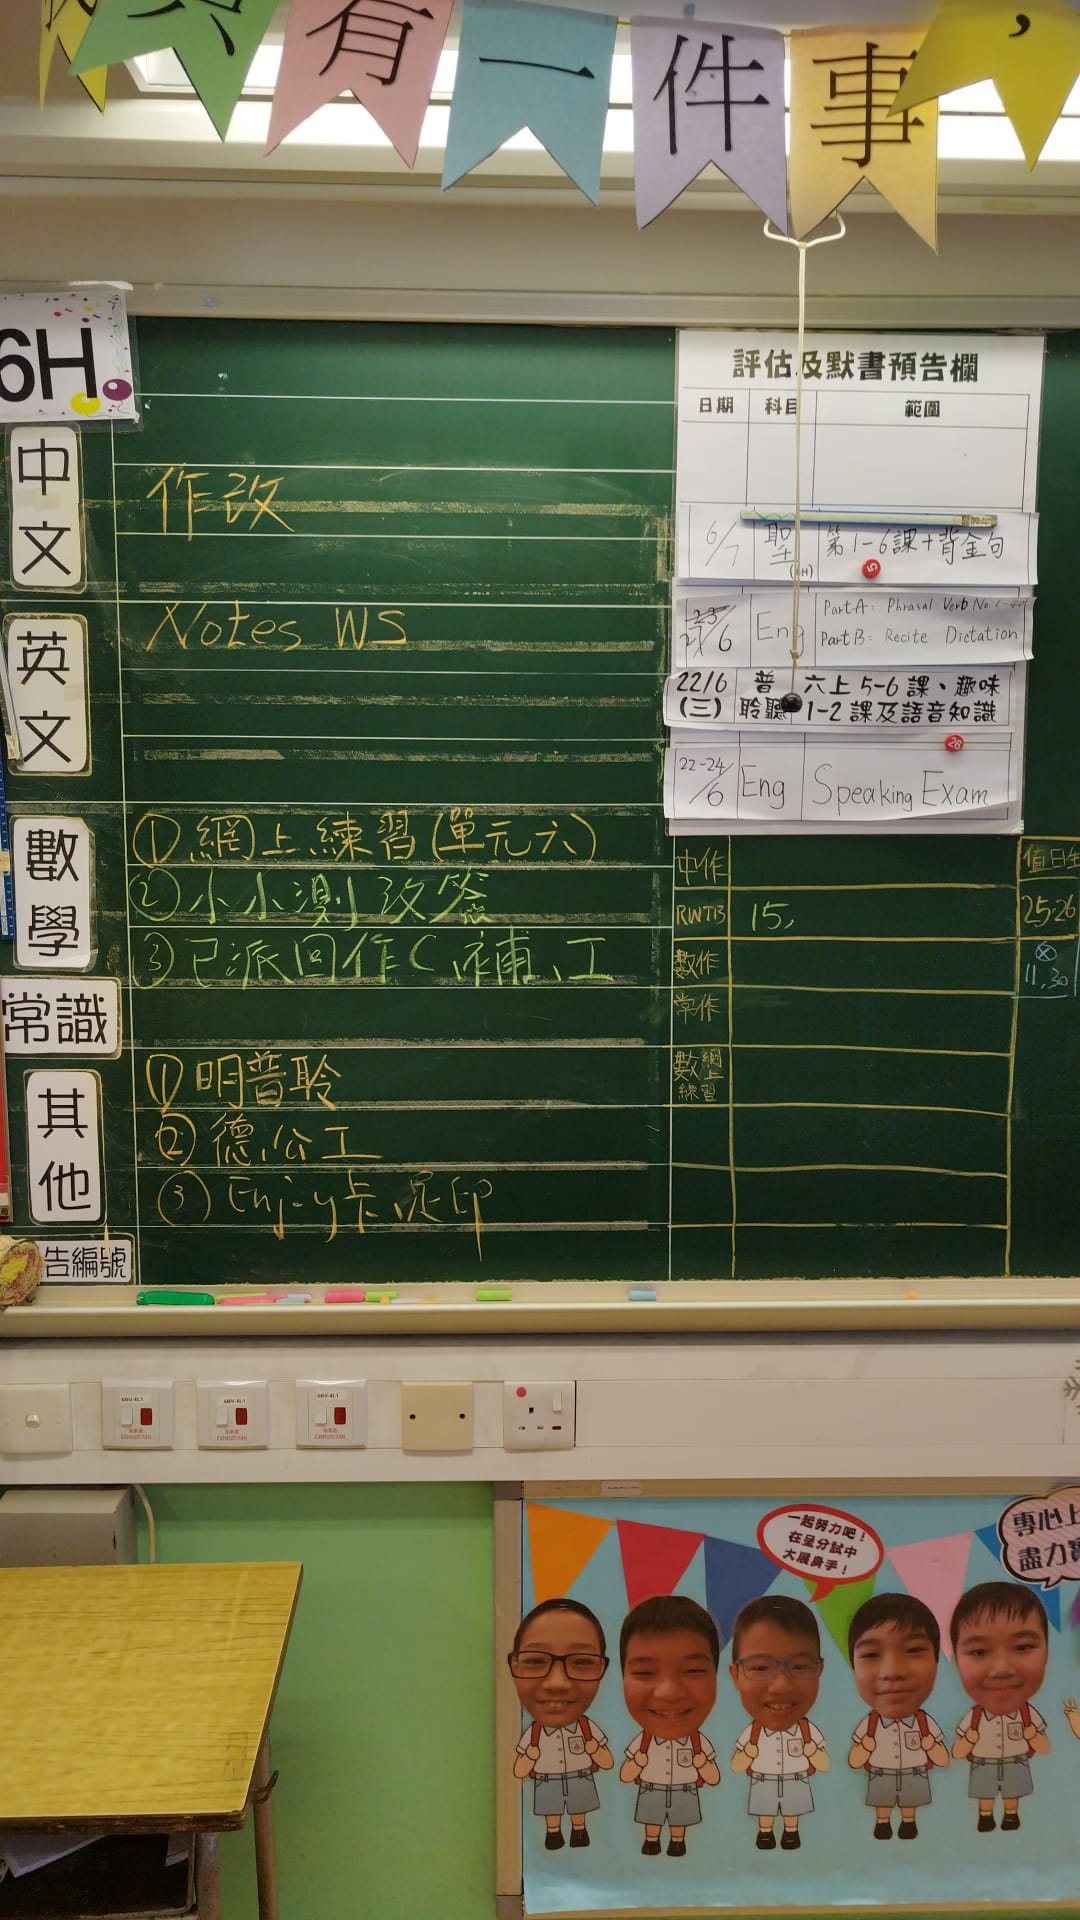 只有一件事，
6H
中文
作改
英文
Notes WS
數學
①網上練習(單元六)
②小小測改簽
③已派回作C、補、工
常識
其他
①明普聆
②德、公工
③Enjoy卡、足印
告編號
評估及默書預告欄
日期 科目 範圍
6/7 聖(6H) 第1-6課+背金句
6 Eng Part A: Phrasal Verb No.
Part B: Recite Dictation
22/6 普 六上5-6課、趣味
(三) 聆聽 1-2課及語音知識
22-24/6 Eng Speaking Exam
中作 值日生
RWTB 15, 25.26
數作 11,30
常作
數網上練習
EXHAUST FAN
EXHAUST FAN
EXHAUST FAN
一起努力吧！
在呈分試中
大展身手！
專心上
盡力